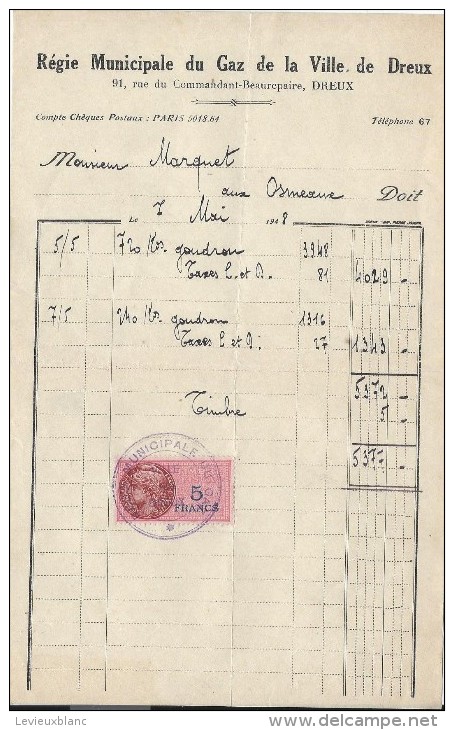 Régie Municipale du Gaz de la Ville de Dreux
91, rue du Commandant-Beaurepaire, DREUX
Compte Chèques Postaux : PARIS 5018.64 Téléphone 67
Monsieur Marquet
aux Osmeaux Doit
Le 7 Mai 1948
5/5 720 Kgs goudron 3948
Taxes L. et D. 81 4029 -
7/5 240 Kgs goudron 1316
Taxes L et D. 27 1343 -
5372 -
Timbre 5 -
5377 -
MUNICIPALE
5
FRANCS
Levieuxblanc
delcampe.net